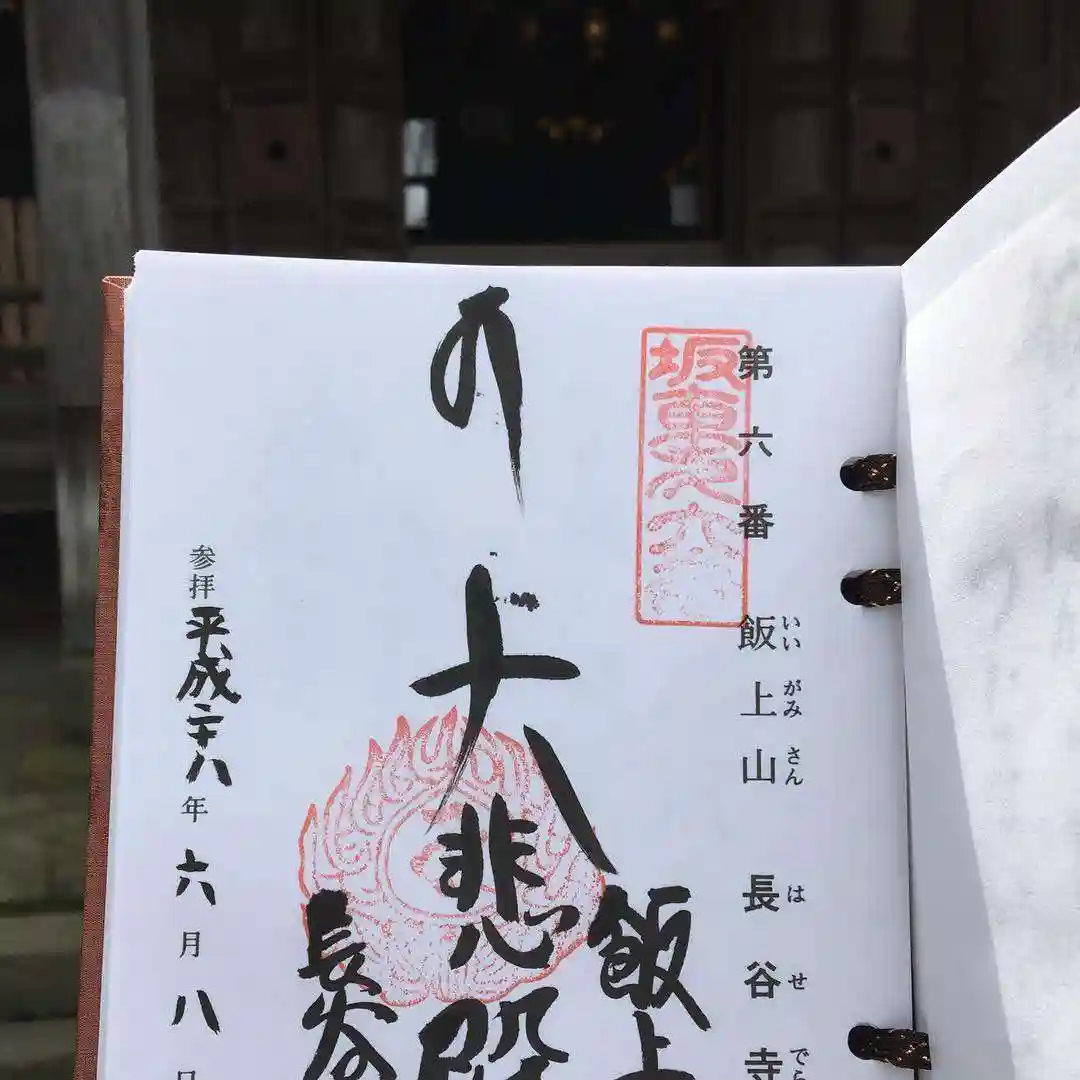 第六番 飯上山 長谷寺
いいがみさん はせでら
坂東
六
飯上
大悲殿
長谷
参拝平成二十八年六月八日